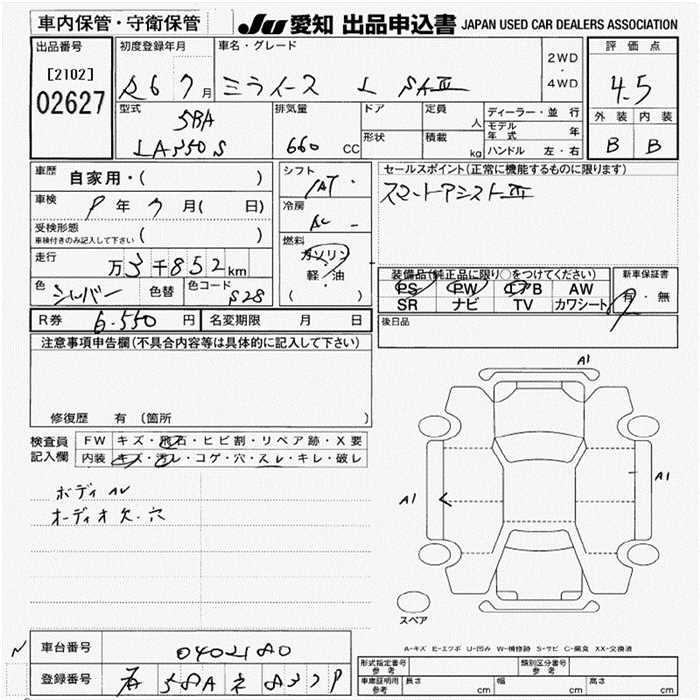 車内保管・守衛保管
JU 愛知 出品申込書 JAPAN USED CAR DEALERS ASSOCIATION
出品番号
[2102]
02627
初度登録年月
R6 7月
車名・グレード
ミライース L SAⅢ
2WD
・
4WD
評価点
4.5
外装 内装
B B
型式
5BA
LA350S
排気量
660 CC
ドア
形状
定員
人
積載
kg
ディーラー・並行
モデル年式 年
ハンドル 左・右
車歴
自家用・( )
車検
9年7月( 日)
受検形態
車検付きのみ記入して下さい ( )
走行
万3千852km
色
シルバー
色替
色コード
S28
シフト
AT
冷房
AC
燃料
ガソリン
・
軽・油
( )
セールスポイント(正常に機能するものに限ります)
スマートアシストⅢ
装備品(純正品に限り○をつけてください)
PS PW エアB AW
SR ナビ TV カワシート
新車保証書
有・無
後日品
R券 6.550円
名変期限 月 日
注意事項申告欄(不具合内容等は具体的に記入して下さい)
修復歴 有(箇所 )
検査員
記入欄
FW キズ・飛石・ヒビ割・リペア跡・X要
内装 キズ・汚レ・コゲ・穴・スレ・キレ・破レ
ボディ
オーディオ欠・穴
A1
A1
A1
スペア
A-キズ E-エクボ U-凹み W-補修跡 S-サビ C-腐食 XX-交換済
車台番号 0402180
登録番号
型式指定番号
参考
類別区分番号
参考
車庫証明用
参考
長さ cm
幅 cm
高さ cm